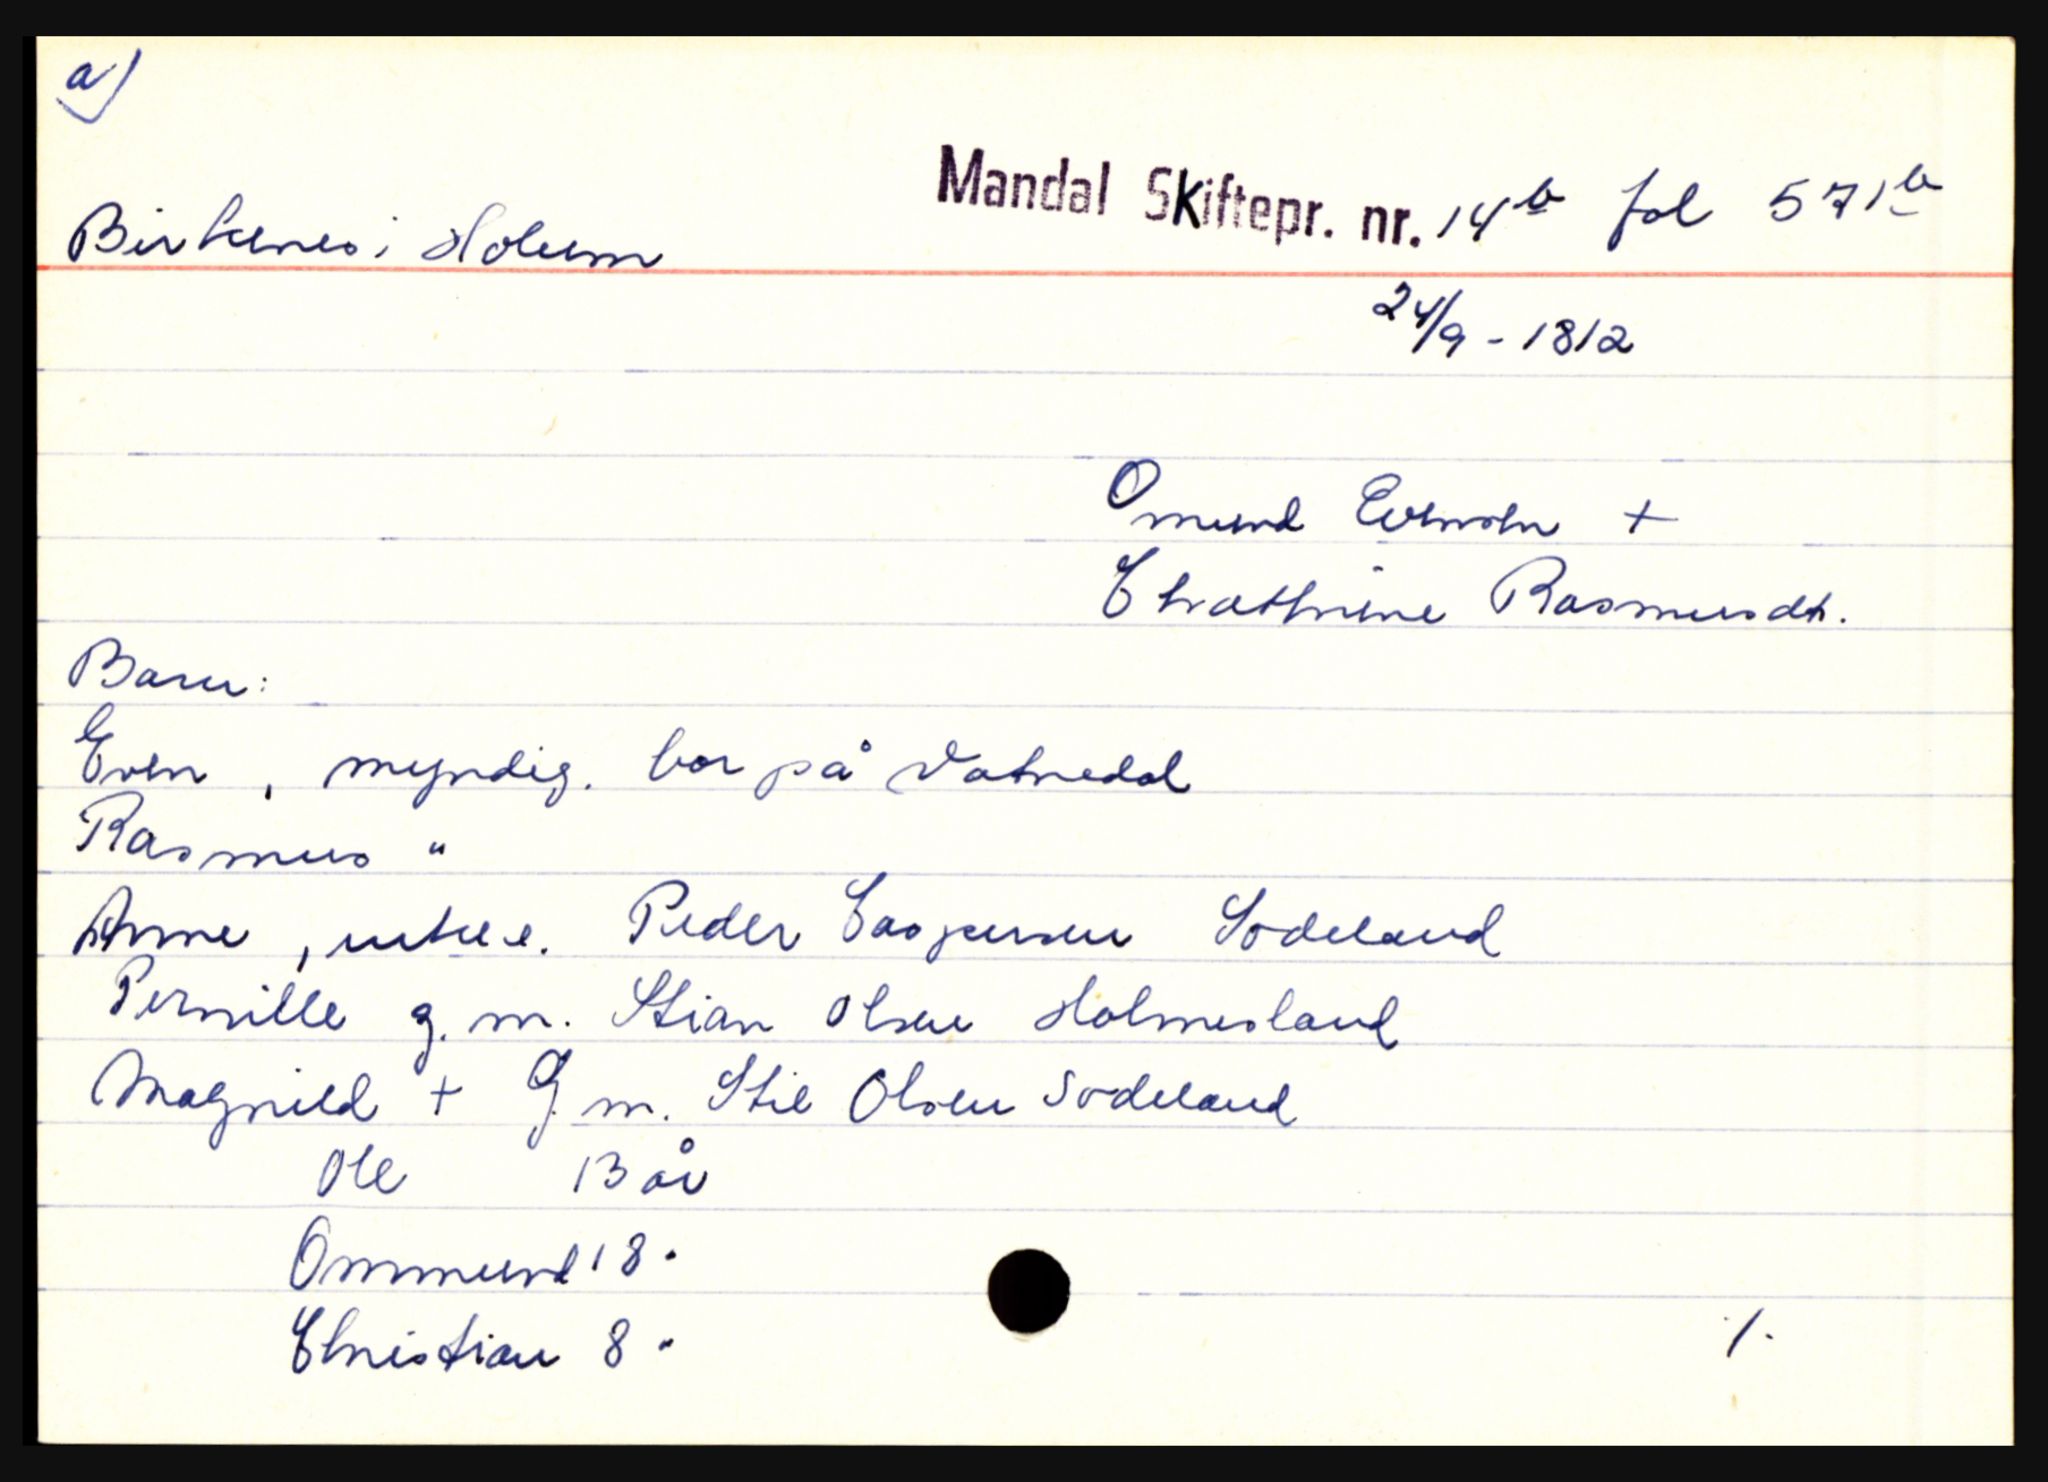 a)
Mandal Skiftepr. nr. 14b fol 571b
Birkenes i Holum
24/9 - 1812
Omund Evensen +
Chathrine Rasmusdt.
Barn:
Even, myndig. bor på Vatnedal
Rasmus "
Anne, enke e. Peder Caspersen Sodeland
Pernille g. m. Stian Olsen Holmesland
Magnild + G. m. Stie Olsen Sodeland
Ole 13 år
Ommund 18 "
Christian 8 "
/.